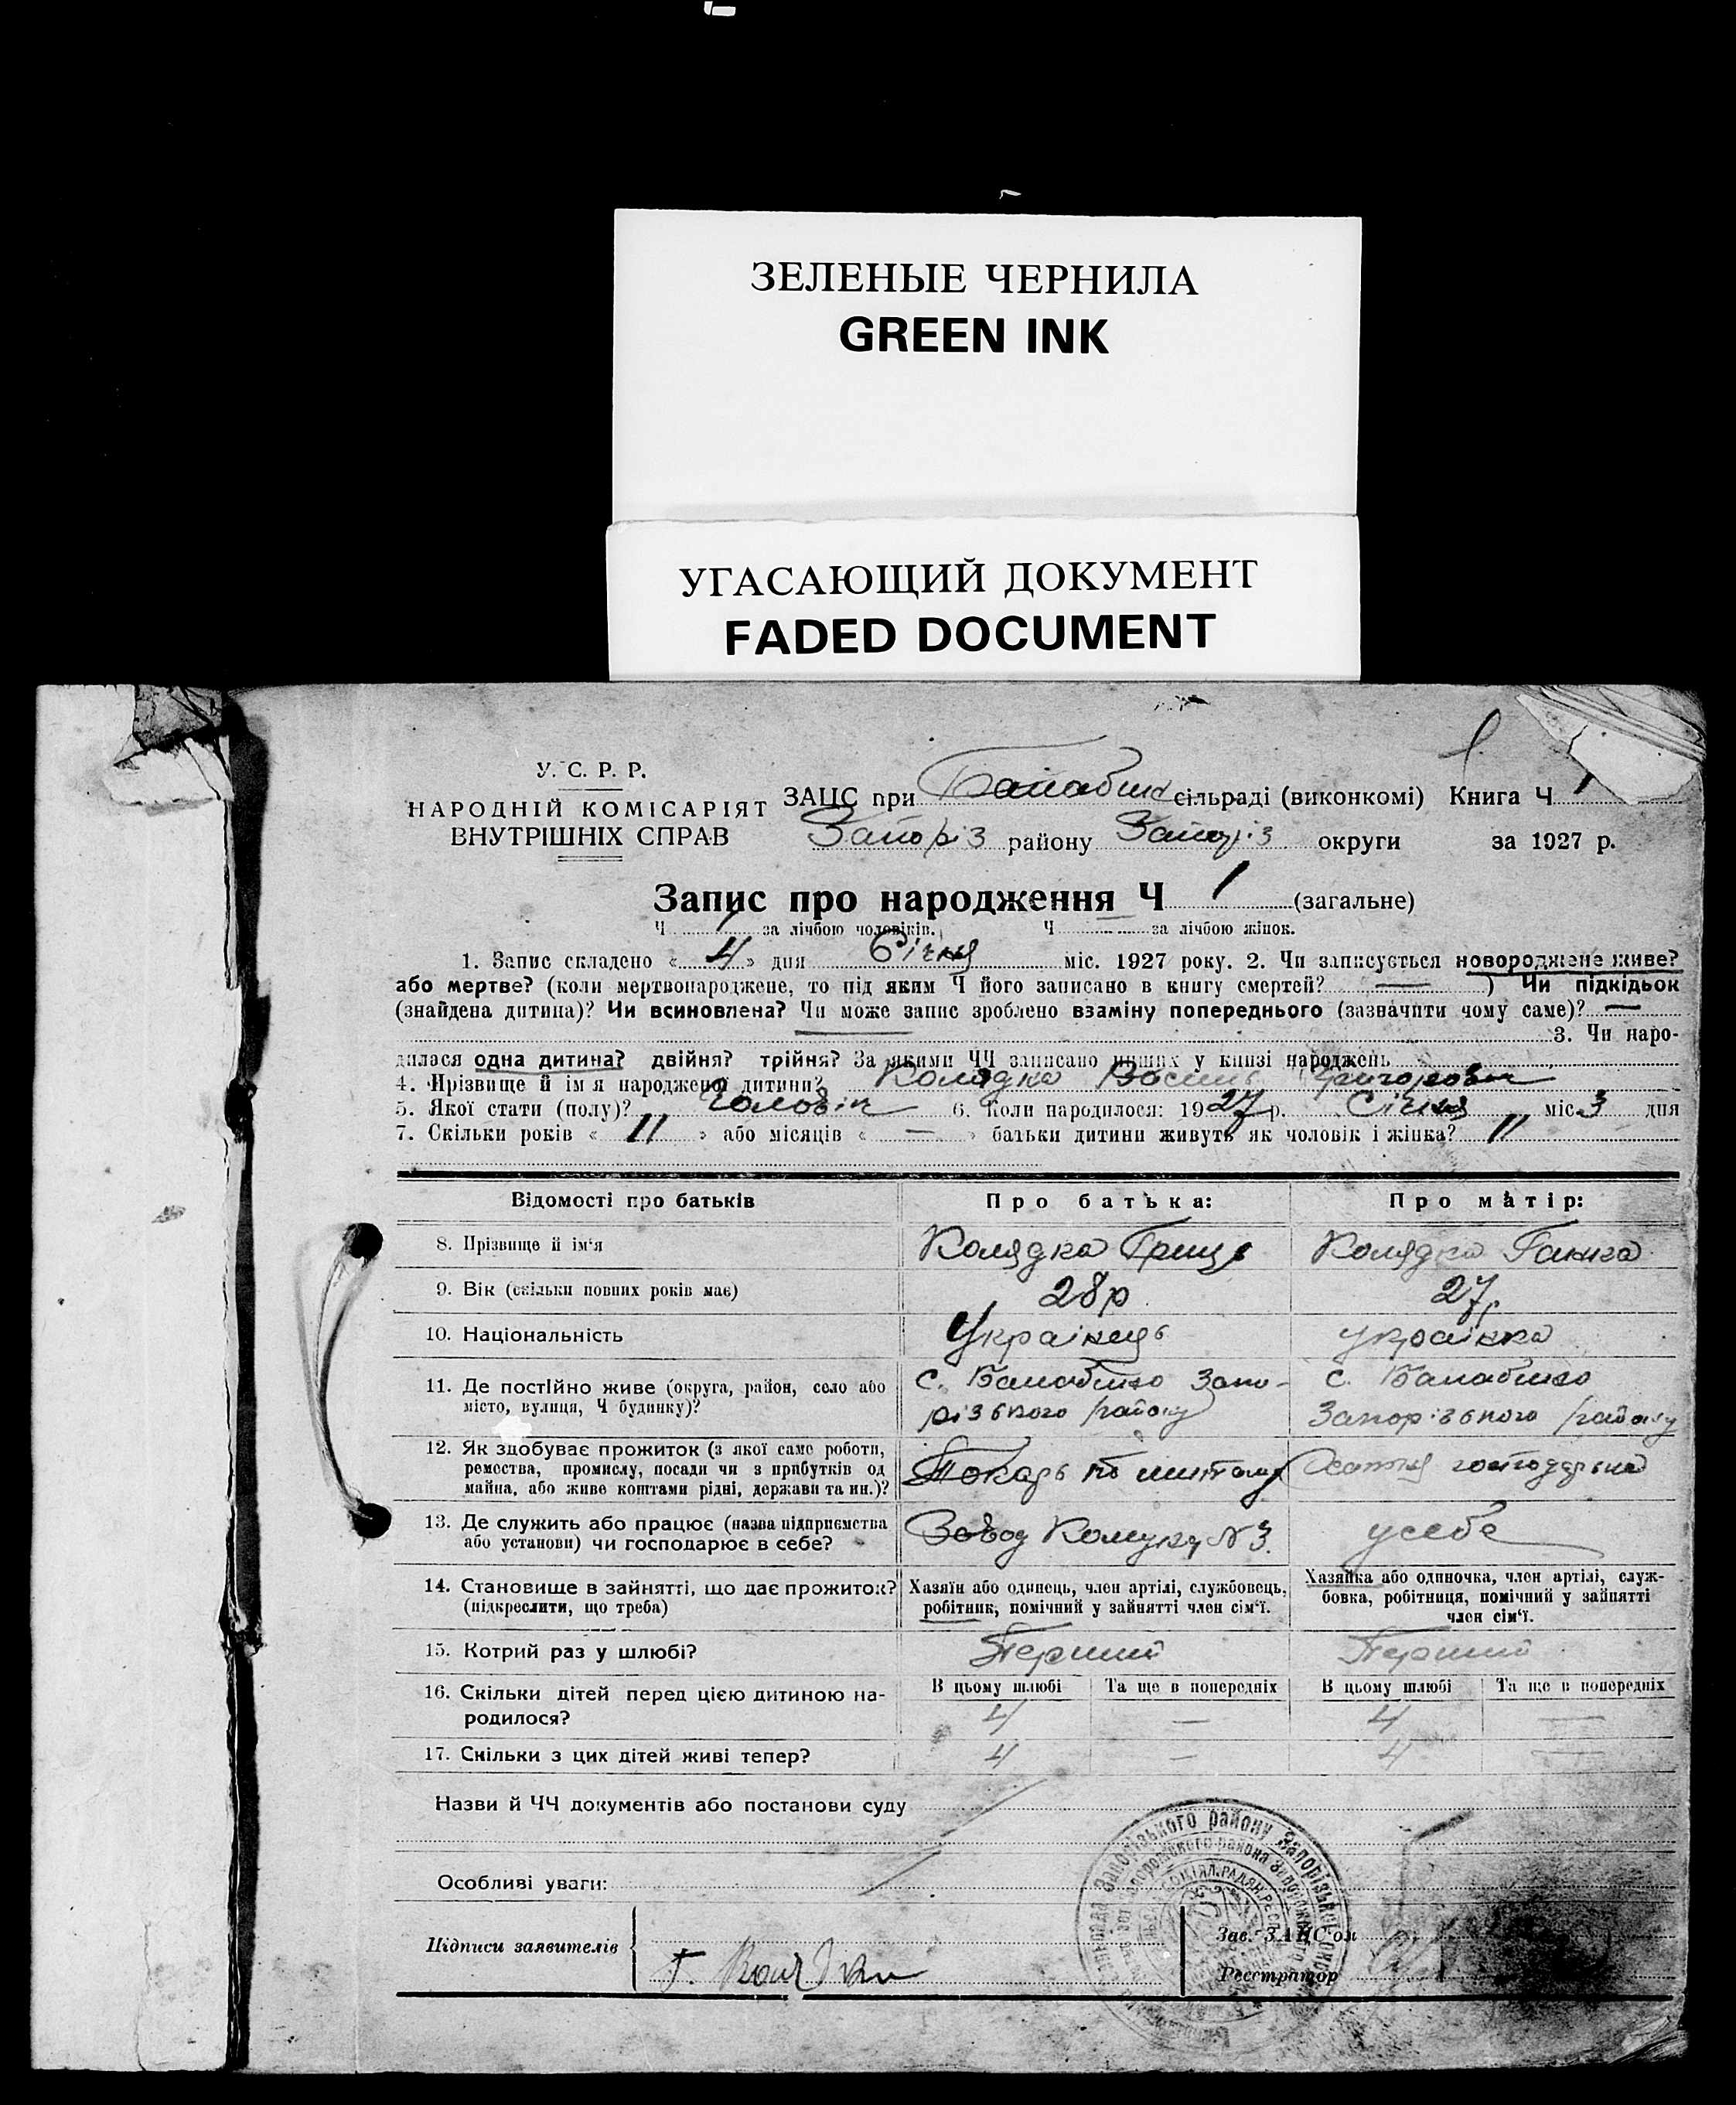 ЗЕЛЕНЫЕ ЧЕРНИЛА
GREEN INK
УГАСАЮЩИЙ ДОКУМЕНТ
FADED DOCUMENT
У. С. Р. Р.
НАРОДНІЙ КОМІСАРІЯТ
ВНУТРІШНІХ СПРАВ
ЗАЦС при Балабин сільраді (виконкомі) Книга Ч 1
Запоріз району Запоріз округи за 1927 р.
Запис про народження Ч 1 (загальне)
Ч 1 за лічбою чоловіків. Ч за лічбою жінок.
1. Запис складено «4» дня Січня міс. 1927 року. 2. Чи записується новороджене живе?
або мертве? (коли мертвонароджене, то під яким Ч його записано в книгу смертей? — ) Чи підкідьок
(знайдена дитина)? Чи всиновлена? Чи може запис зроблено взаміну попереднього (зазначити чому саме)? —
3. Чи наро-
дилася одна дитина? двійня? трійня? За якими ЧЧ записано инших у книзі народжень
4. Прізвище й ім'я народженої дитини? Колядка Василь Григорович
5. Якої стати (полу)? Чоловік 6. Коли народилося: 1927 р. Січня міс. 3 дня
7. Скільки років « 11 » або місяців « — » батьки дитини живуть як чоловік і жінка? 11
Відомості про батьків Про батька: Про матір:
8. Прізвище й ім'я Колядка Гриць Колядка Ганна
9. Вік (скільки повних років має) 28р. 27р.
10. Національність Українець українка
11. Де постійно живе (округа, район, село або с. Балабино Запо- с. Балабино
місто, вулиця, Ч будинку)? різького району Запорізького району
12. Як здобуває прожиток (з якої саме роботи,
ремества, промислу, посади чи з прибутків од Токарь господарька
майна, або живе коштами рідні, держави та ин.)?
13. Де служить або працює (назва підприємства Завод Комунар № 3. усебе
або установи) чи господарює в себе?
14. Становище в зайнятті, що дає прожиток? Хазяїн або одинець, член артілі, службовець, Хазяйка або одиночка, член артілі, служ-
(підкреслити, що треба) робітник, помічний у зайнятті член сім'ї. бовка, робітниця, помічний у зайнятті
член сім'ї.
15. Котрий раз у шлюбі? Перший Перший
16. Скільки дітей перед цією дитиною на- В цьому шлюбі Та ще в попередніх В цьому шлюбі Та ще в попередніх
родилося? 4 — 4 —
17. Скільки з цих дітей живі тепер? 4 — 4 —
Назви й ЧЧ документів або постанови суду
Особливі уваги:
Підписи заявителів
Зав. ЗАЦС'ом
Реєстратор